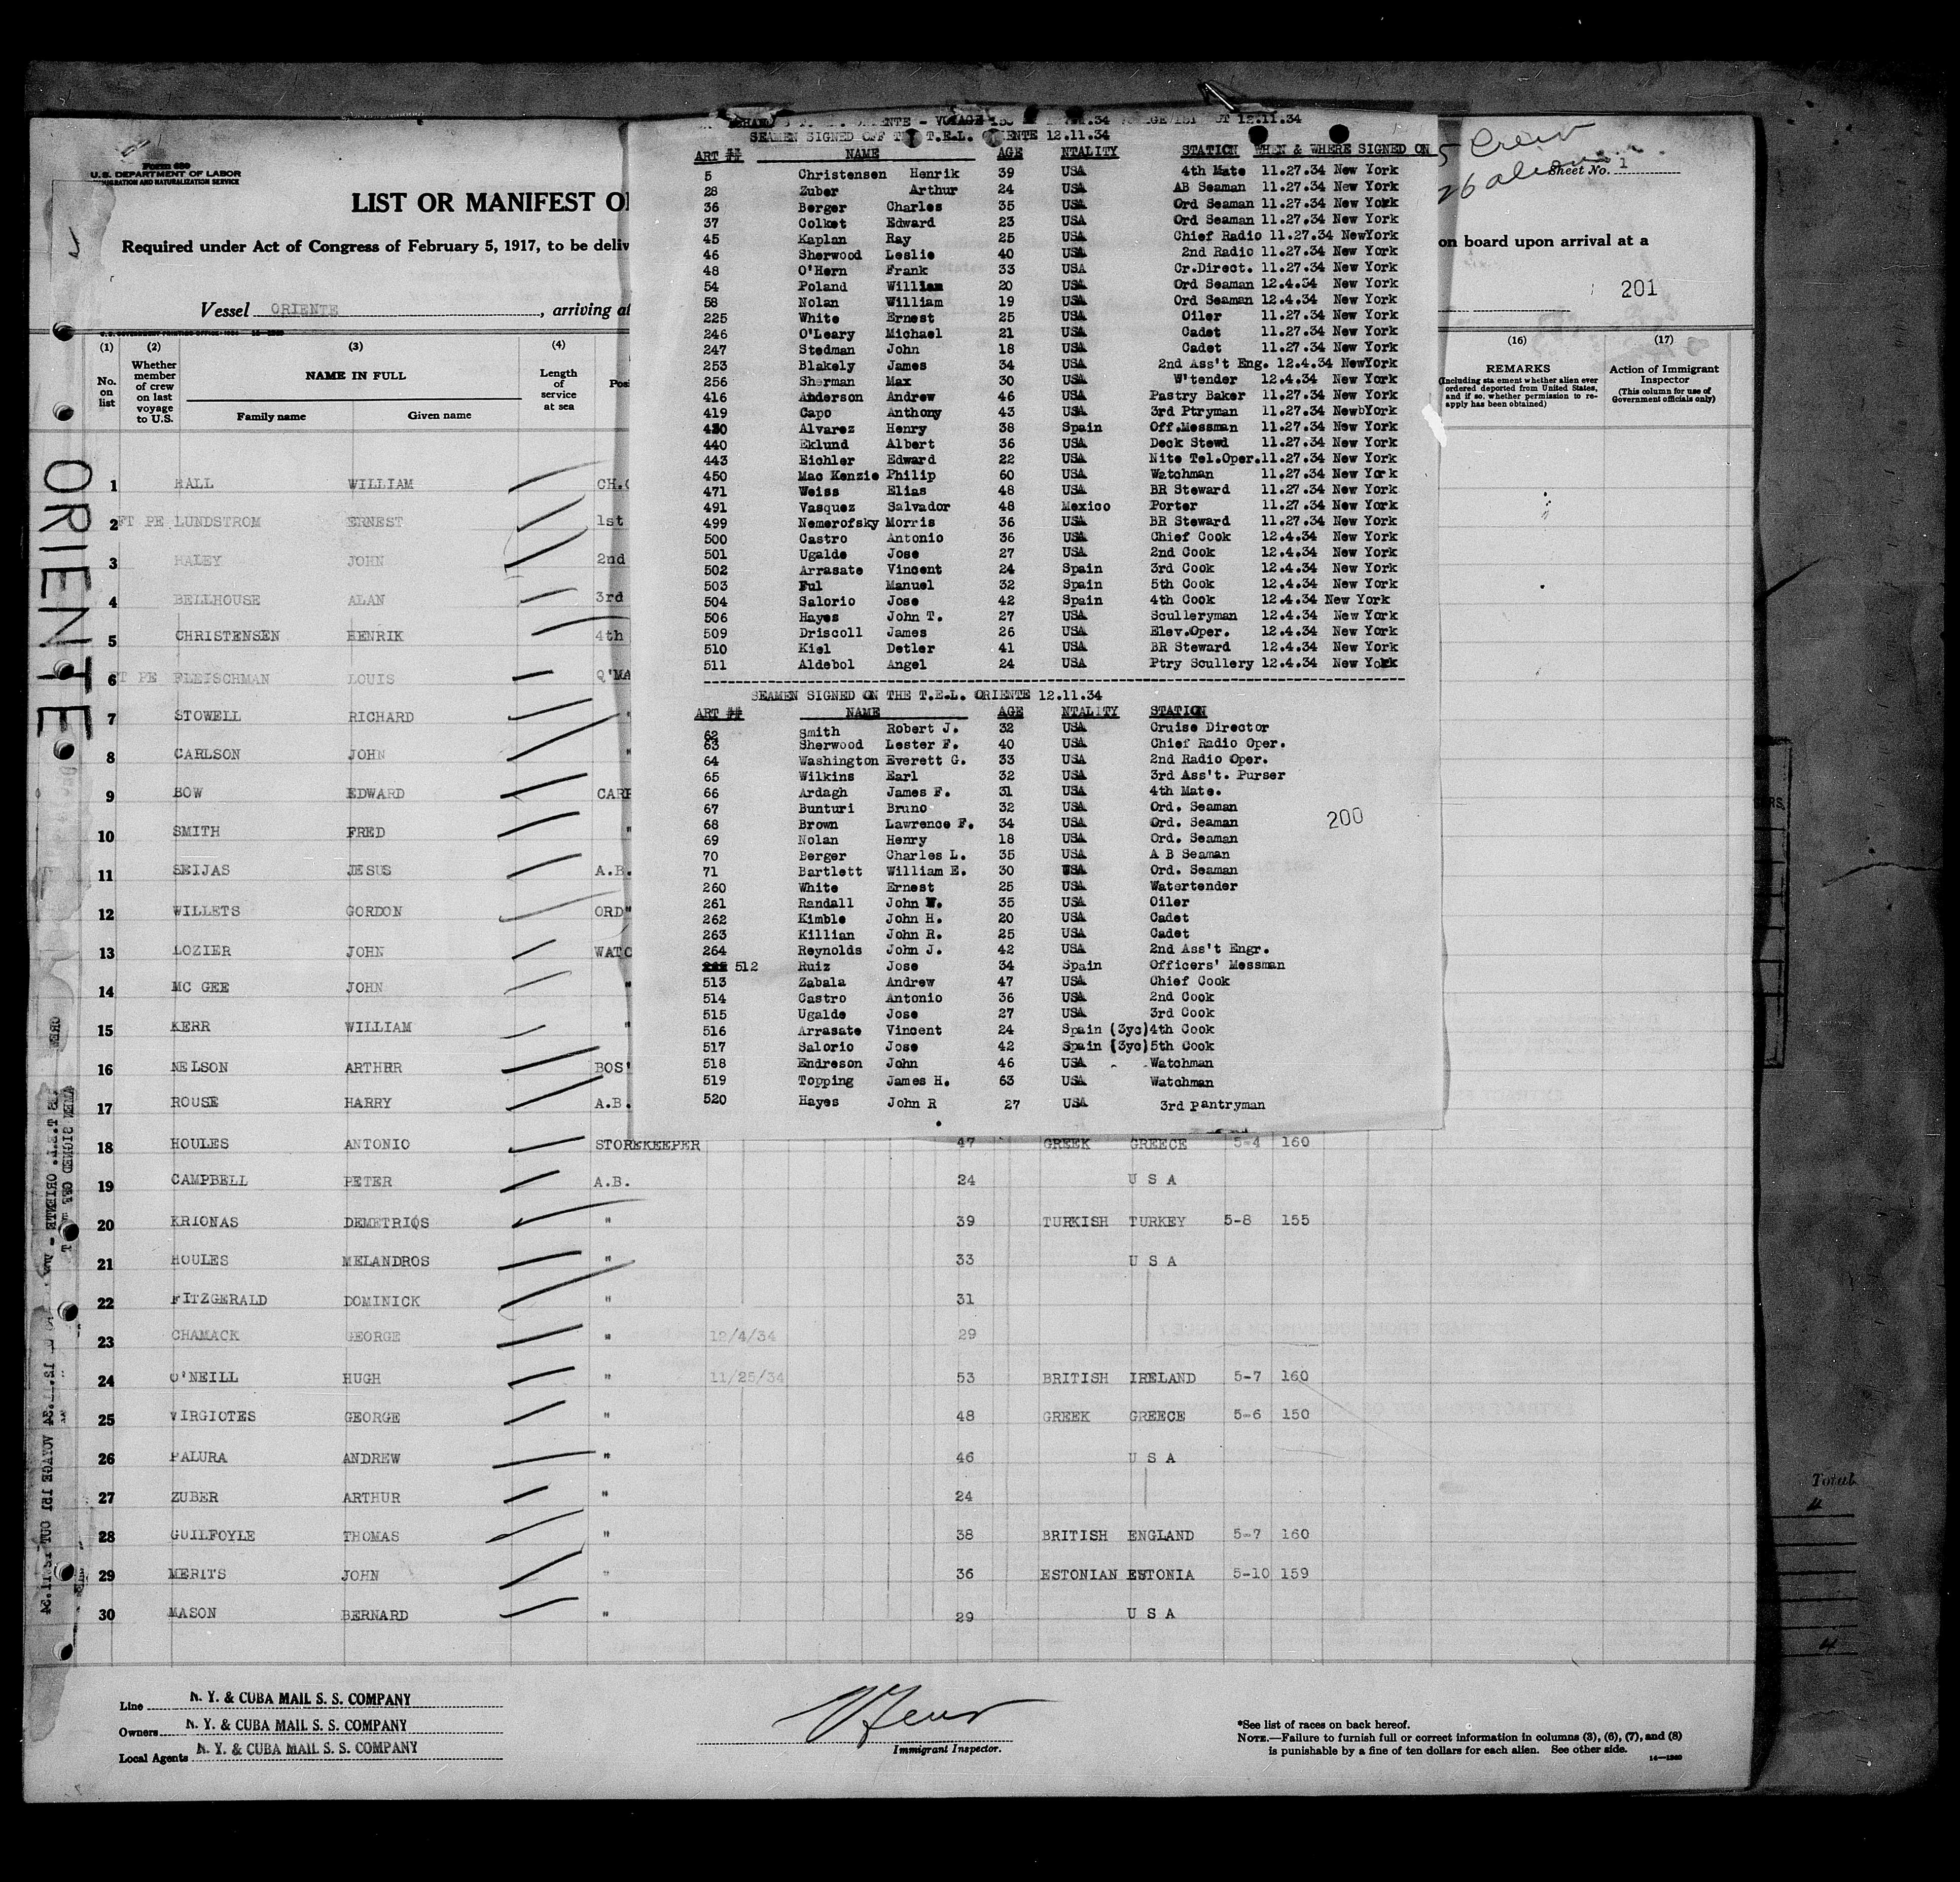 Form 680
U.S. DEPARTMENT OF LABOR
IMMIGRATION AND NATURALIZATION SERVICE
LIST OR MANIFEST O
Required under Act of Congress of February 5, 1917, to be deliv
on board upon arrival at a
Vessel ORIENTE, arriving at
Crew
Sheet No. 1
201
(1) (2) (3) (4)
No. on list
Whether member of crew on last voyage to U.S.
NAME IN FULL
Family name Given name
Length of service at sea
Posi
(16) (17)
REMARKS
(Including statement whether alien ever ordered deported from United States, and if so, whether permission to reapply has been obtained)
Action of Immigrant Inspector
(This column for use of Government officials only)
ORIENTE
ORIENTE - VOYAGE 12.11.34
SEAMEN SIGNED OFF THE T.E.L. ORIENTE 12.11.34
ART ## NAME AGE NTALITY STATION WHEN & WHERE SIGNED ON
5 Christensen Henrik 39 USA 4th Mate 11.27.34 New York
28 Zuber Arthur 24 USA AB Seaman 11.27.34 New York
36 Berger Charles 35 USA Ord Seaman 11.27.34 New York
37 Colket Edward 23 USA Ord Seaman 11.27.34 New York
45 Kaplan Ray 25 USA Chief Radio 11.27.34 NewYork
46 Sherwood Leslie 40 USA 2nd Radio 11.27.34 New York
48 O'Hern Frank 33 USA Cr.Direct. 11.27.34 New York
54 Poland William 20 USA Ord Seaman 12.4.34 New York
58 Nolan William 19 USA Ord Seaman 12.4.34 New York
225 White Ernest 25 USA Oiler 11.27.34 New York
246 O'Leary Michael 21 USA Cadet 11.27.34 New York
247 Stedman John 18 USA Cadet 11.27.34 New York
253 Blakely James 34 USA 2nd Ass't Eng. 12.4.34 NewYork
256 Sherman Max 30 USA W'tender 12.4.34 New York
416 Anderson Andrew 46 USA Pastry Baker 11.27.34 New York
419 Capo Anthony 43 USA 3rd Ptryman 11.27.34 NewbYork
430 Alvarez Henry 38 Spain Off.Messman 11.27.34 New York
440 Eklund Albert 36 USA Deck Stewd 11.27.34 New York
443 Eichler Edward 22 USA Nite Tel.Oper.11.27.34 New York
450 Mac Kenzie Philip 60 USA Watchman 11.27.34 New York
471 Weiss Elias 48 USA BR Steward 11.27.34 New York
491 Vasquez Salvador 48 Mexico Porter 11.27.34 New York
499 Nemerofsky Morris 36 USA BR Steward 11.27.34 New York
500 Castro Antonio 36 USA Chief Cook 12.4.34 New York
501 Ugalde Jose 27 USA 2nd Cook 12.4.34 New York
502 Arrasate Vincent 24 Spain 3rd Cook 12.4.34 New York
503 Ful Manuel 32 Spain 5th Cook 12.4.34 New York
504 Salorio Jose 42 Spain 4th Cook 12.4.34 New York
506 Hayes John T. 27 USA Sculleryman 12.4.34 New York
509 Driscoll James 26 USA Elev.Oper. 12.4.34 New York
510 Kiel Detler 41 USA BR Steward 12.4.34 New York
511 Aldebol Angel 24 USA Ptry Scullery 12.4.34 New York
SEAMEN SIGNED ON THE T.E.L. ORIENTE 12.11.34
ART ## NAME AGE NTALITY STATION
62 Smith Robert J. 32 USA Cruise Director
63 Sherwood Lester F. 40 USA Chief Radio Oper.
64 Washington Everett G. 33 USA 2nd Radio Oper.
65 Wilkins Earl 32 USA 3rd Ass't. Purser
66 Ardagh James F. 31 USA 4th Mate.
67 Bunturi Bruno 32 USA Ord. Seaman
68 Brown Lawrence F. 34 USA Ord. Seaman
69 Nolan Henry 18 USA Ord. Seaman
70 Berger Charles L. 35 USA A B Seaman
71 Bartlett William E. 30 USA Ord. Seaman
260 White Ernest 25 USA Watertender
261 Randall John W. 35 USA Oiler
262 Kimble John H. 20 USA Cadet
263 Killian John R. 25 USA Cadet
264 Reynolds John J. 42 USA 2nd Ass't Engr.
512 Ruiz Jose 34 Spain Officers' Messman
513 Zabala Andrew 47 USA Chief Cook
514 Castro Antonio 36 USA 2nd Cook
515 Ugalde Jose 27 USA 3rd Cook
516 Arrasate Vincent 24 Spain (3yc)4th Cook
517 Salorio Jose 42 Spain (3yc)5th Cook
518 Endreson John 46 USA Watchman
519 Topping James H. 63 USA Watchman
520 Hayes John R 27 USA 3rd pantryman
200
1 HALL WILLIAM CH.
2 FT PE LUNDSTROM ERNEST 1st
3 HALEY JOHN 2nd
4 BELLHOUSE ALAN 3rd
5 CHRISTENSEN HENRIK 4th
6 FT PE FLEISCHMAN LOUIS Q'MA
7 STOWELL RICHARD "
8 CARLSON JOHN "
9 BOW EDWARD CARP
10 SMITH FRED "
11 SEIJAS JESUS A.B.
12 WILLETS GORDON ORD"
13 LOZIER JOHN WATC
14 MC GEE JOHN "
15 KERR WILLIAM "
16 NELSON ARTHRR BOS'
17 ROUSE HARRY A.B.
18 HOULES ANTONIO STOREKEEPER 47 GREEK GREECE 5-4 160
19 CAMPBELL PETER A.B. 24 U S A
20 KRIONAS DEMETRIOS " 39 TURKISH TURKEY 5-8 155
21 HOULES MELANDROS " 33 U S A
22 FITZGERALD DOMINICK " 31
23 CHAMACK GEORGE " 12/4/34 29
24 O'NEILL HUGH " 11/25/34 53 BRITISH IRELAND 5-7 160
25 VIRGIOTES GEORGE " 48 GREEK GREECE 5-6 150
26 PALURA ANDREW " 46 U S A
27 ZUBER ARTHUR " 24
28 GUILFOYLE THOMAS " 38 BRITISH ENGLAND 5-7 160
29 MERITS JOHN " 36 ESTONIAN ESTONIA 5-10 159
30 MASON BERNARD " 29 U S A
Total
4
4
Line N. Y. & CUBA MAIL S. S. COMPANY
Owners N. Y. & CUBA MAIL S. S. COMPANY
Local Agents N. Y. & CUBA MAIL S. S. COMPANY
Immigrant Inspector.
*See list of races on back hereof.
NOTE.—Failure to furnish full or correct information in columns (3), (6), (7), and (8)
is punishable by a fine of ten dollars for each alien. See other side.